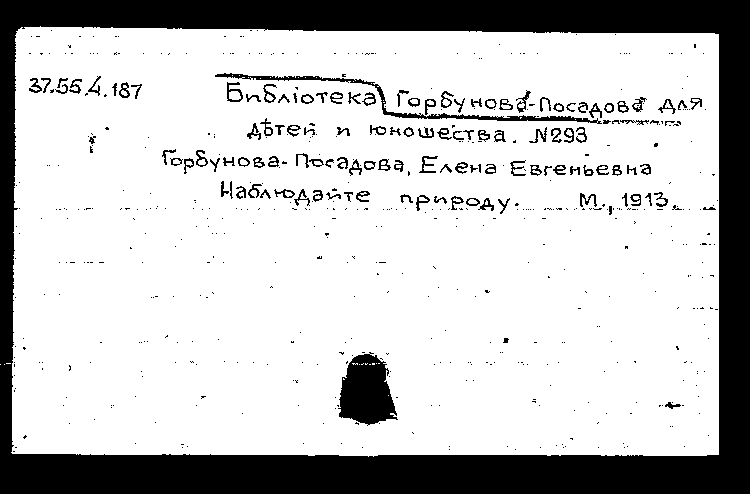 37.55.4.187 Библіотека Горбунова-Посадова для
дѣтей и юношества. N293
Горбунова-Посадова, Елена Евгеньевна
Наблюдайте природу. М., 1913.